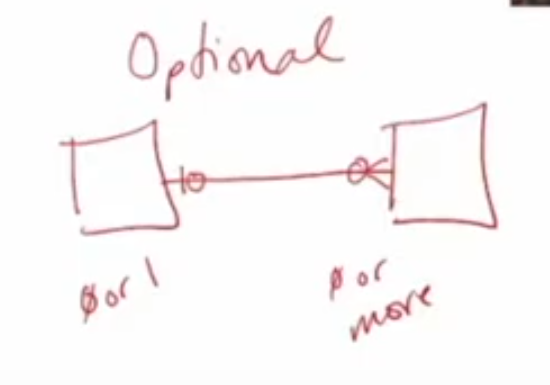 Optional
0 or 1
0 or
more